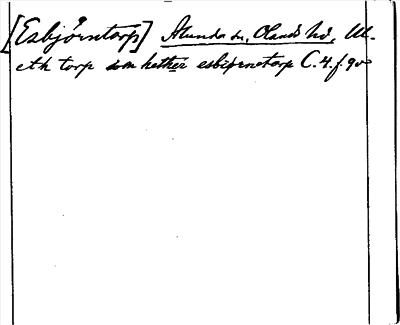 [Esbjørntorp] Alunda sn, Olands hd, Ul.
eth torp som hether esbiørnetorp C.4.f.9v